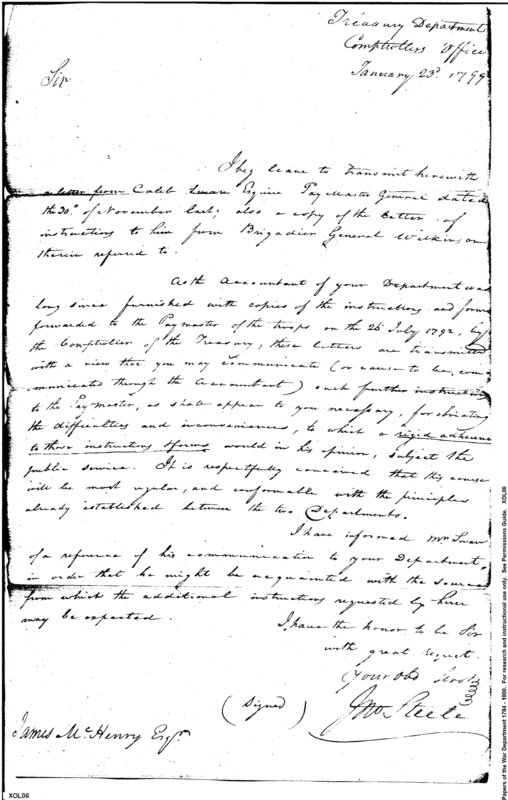 Treasury Department
Comptrollers Office
January 23d. 1799
Sir
I beg leave to transmit herewith
a letter from Caleb Swan Esquire PayMaster General dated
the 30th of November last; also a copy of the letter of
instructions to him from Brigadier General Wilkinson
therein refered to.
As the Accountant of your Department was
long since furnished with copies of the instructions and forms
forwarded to the Paymaster of the troops on the 26 July 1792, by
the Comptroller of the Treasury, these letters are transmitted
with a view that you may communicate (or cause to be com-
municated through the Accountant) such further instructions
to the Paymaster, as shall appear to you necessary, for obviating
the difficulties and inconveniences, to which a rigid adherence
to those instructions & forms would in his opinion, subject the
public service. It is respectfully conceived that this course
will be most regular, and conformable with the principles
already established between the two Departments.
I have informed Mr Swan
of a reference of his communication to your Department,
in order that he might be acquainted with the source
from which the additional instructions requested by him
may be expected.
I have the honor to be Sir
with great respect
Your Obd Servt
(Signed)
Jno Steele
James McHenry Esqr.
XOL06
Papers of the War Department 1784 - 1800. For research and instructional use only. See Permissions Guide. XOL06